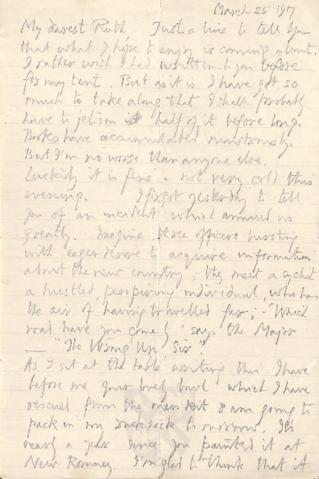 March 25 1917
My dearest Ruth, Just a line to tell you
that what I hope to enjoy is coming about.
I rather wish I had written to you before
for my tent. But as it is I have got so
much to take along that I shall probably
have to jetison half of it before long.
Books have accumulated monstrously.
But I'm no worse than anyone else.
Luckily it is fine & not very cold this
evening. I forgot yesterday to tell
you of an incident which amused us
greatly. Imagine three officers bursting
with eager desire to acquire information
about the new country; they meet a cyclist
a hustled perspiring individual, who has
the air of having travelled far; - 'Which
road have you come by' says the Major
— "The Wrong 'Un' Sir"
As I sit at the table writing this I have
before me your lovely bowl which I have
rescued from the mess kit & am going to
pack in my rucksack tomorrow. It's
nearly a year since you painted it at
New Romney. I'm glad to think that it